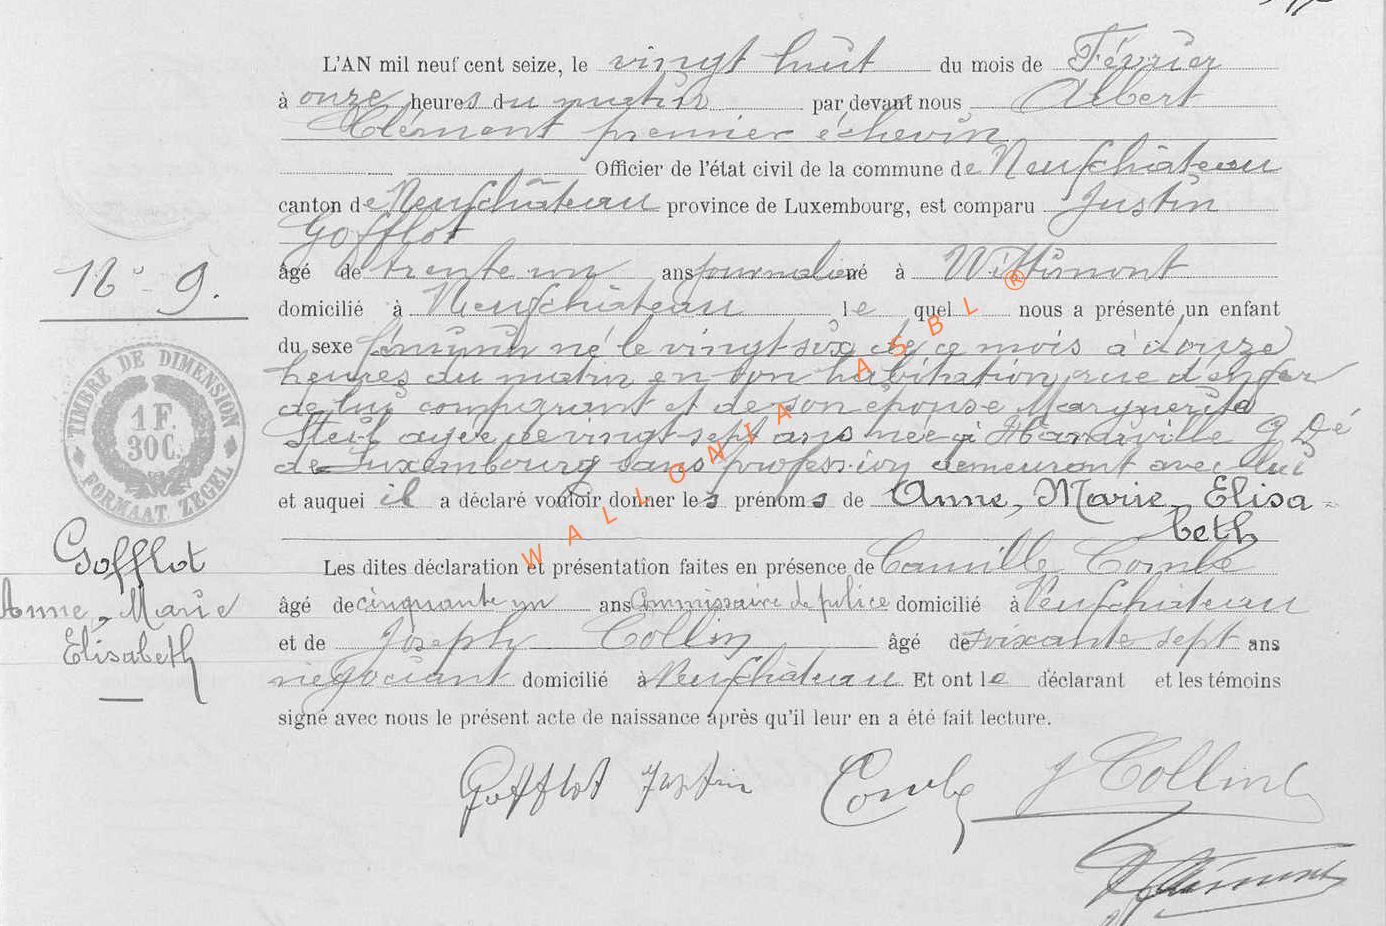 L'AN mil neuf cent seize, le vingt huit du mois de Février
à onze heures du matin par devant nous Albert
Clément premier échevin
Officier de l'état civil de la commune de Neufchâteau
canton de Neufchâteau province de Luxembourg, est comparu Justin
Gofflot
N° 9.
âgé de trente un ans journalier né à Wittimont
domicilié à Neufchâteau le quel nous a présenté un enfant
du sexe féminin né le vingt-six de ce mois à douze
heures du matin en son habitation, rue d'enfer
de lui comparant et de son épouse Marguerite
âgée de vingt-sept ans née à G Dé
de Luxembourg sans profession demeurant avec lui
et auquel il a déclaré vouloir donner les prénoms de Anne, Marie, Elisa-
beth
Les dites déclaration et présentation faites en présence de Camille Combe
âgé de cinquante un ans Commissaire de police domicilié à Neufchâteau
et de Joseph Collin âgé de soixante sept ans
négociant domicilié à Neufchâteau Et ont le déclarant et les témoins
signé avec nous le présent acte de naissance après qu'il leur en a été fait lecture.
TIMBRE DE DIMENSION
1 F.
30 C.
FORMAAT ZEGEL
Gofflot
Anne, Marie
Elisabeth
Gofflot Justin Combe J Collin
A Clément
WALLONIA ASBL ®